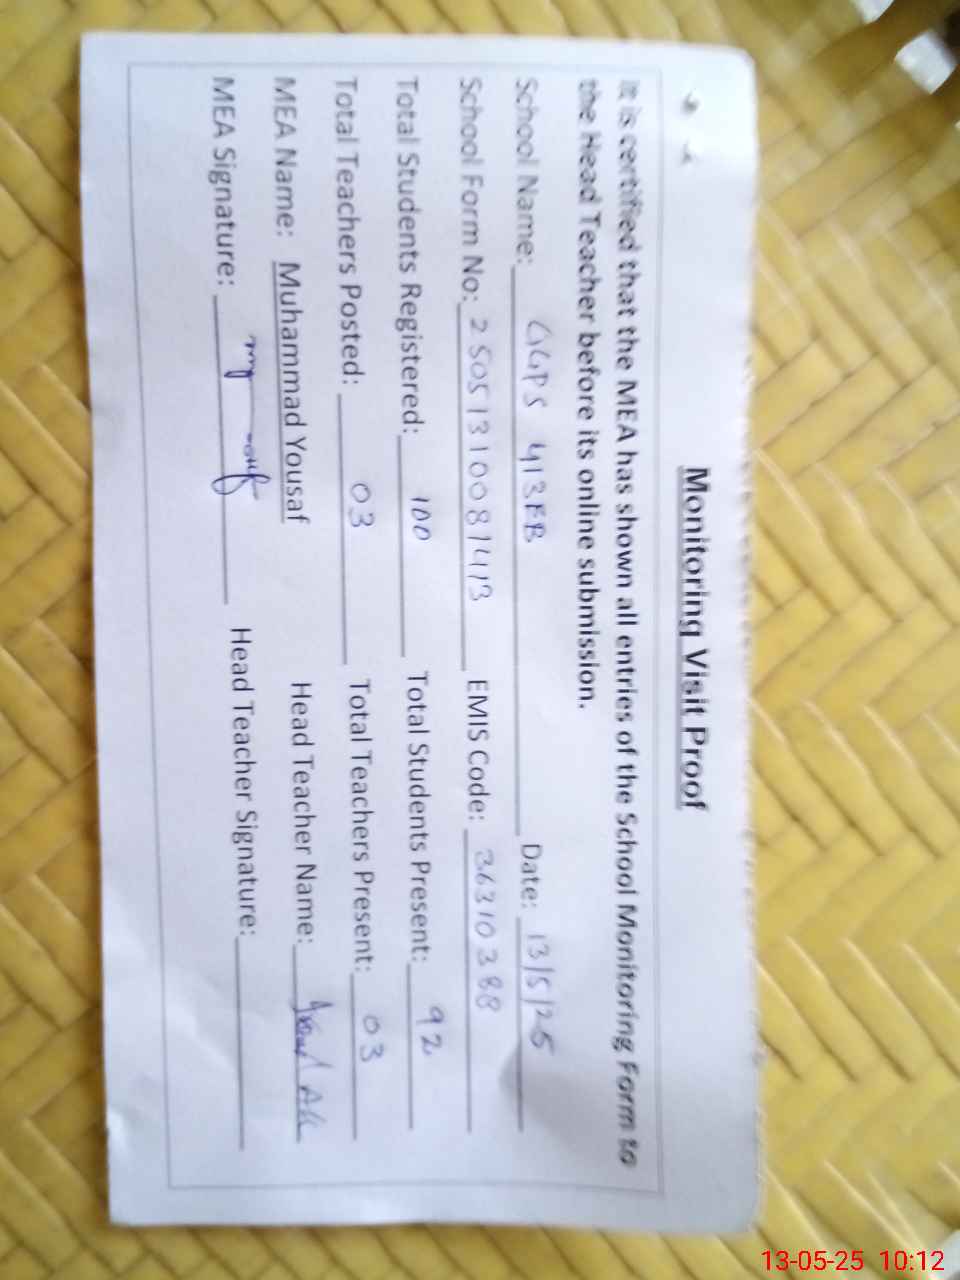 Monitoring Visit Proof
It is certified that the MEA has shown all entries of the School Monitoring Form to
the Head Teacher before its online submission.
School Name: GGPS 413EB Date: 13/5/25
School Form No: 25051310081413 EMIS Code: 36310388
Total Students Registered: 100 Total Students Present: 92
Total Teachers Posted: 03 Total Teachers Present: 03
MEA Name: Muhammad Yousaf Head Teacher Name:
MEA Signature: Head Teacher Signature:
13-05-25 10:12